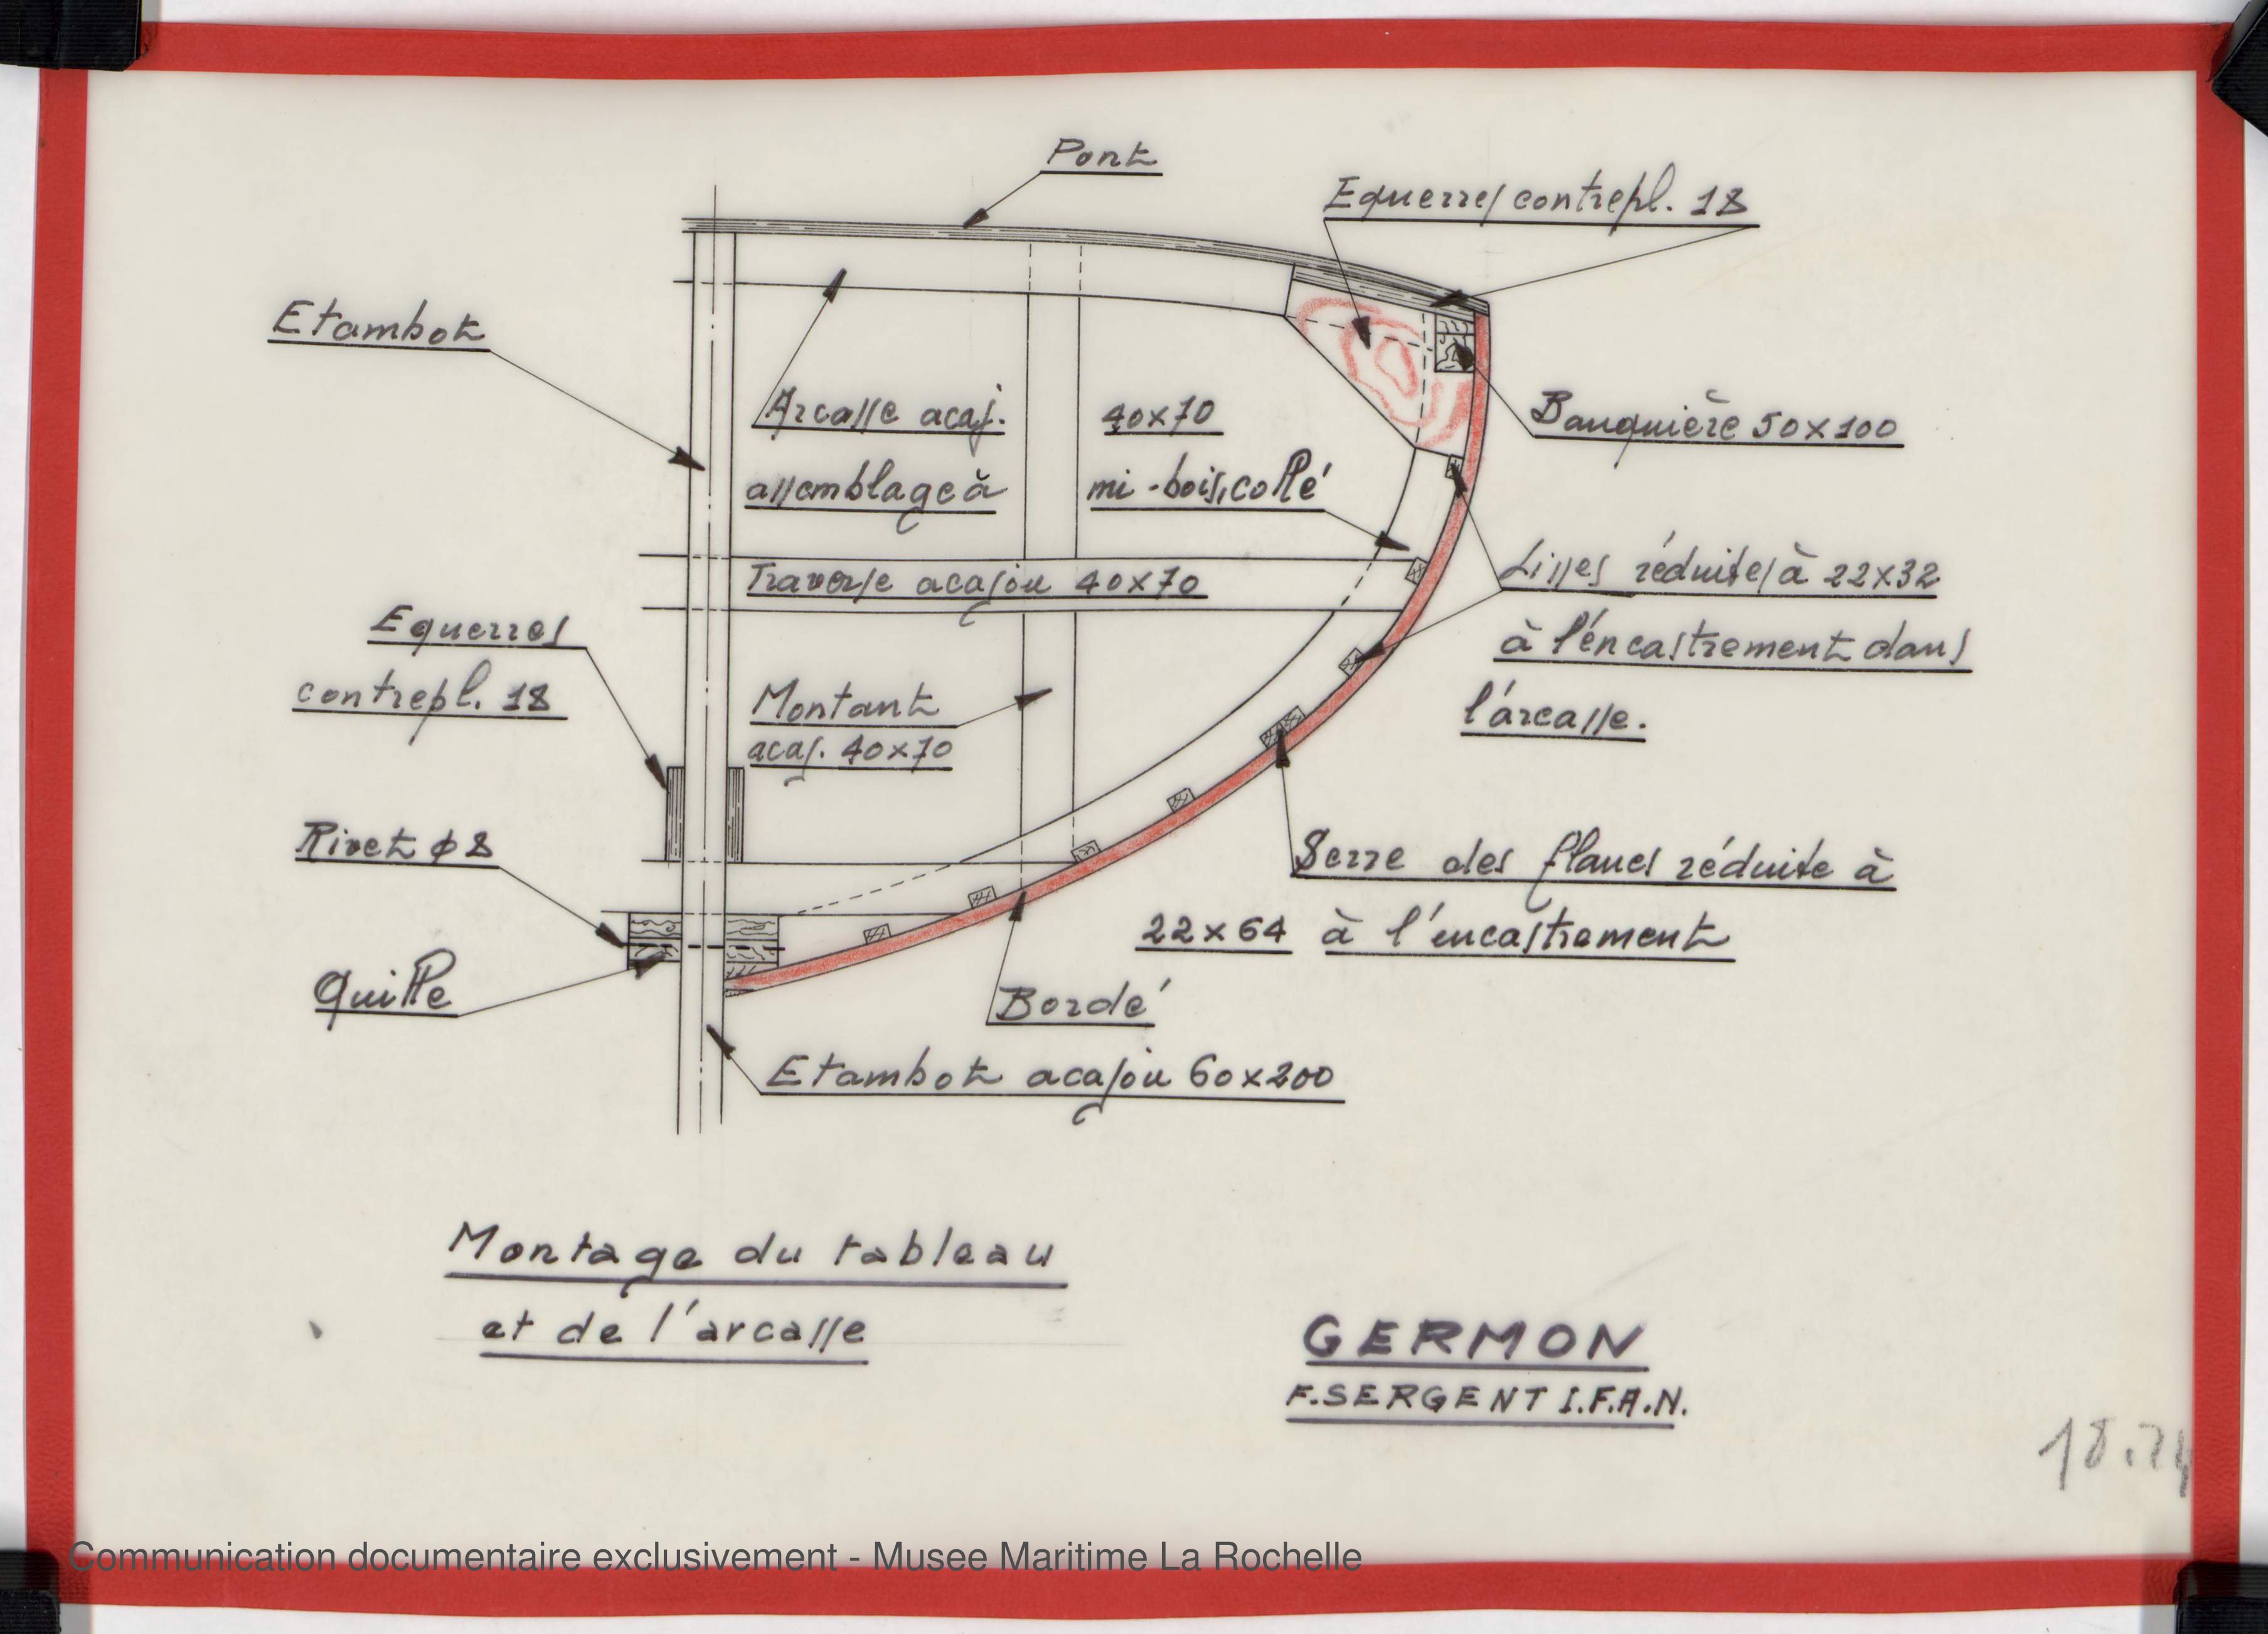 Pont
Equerres contrepl. 18
Etambot
Arcasse acaj. 40x70
assemblage à mi-bois, collé
Banquière 50x100
Traverse acajou 40x70
Lisses réduites à 22x32
à l'encastrement dans
l'arcasse.
Equerres
contrepl. 18
Montant
acaj. 40x70
Rivet φ8
Serre des flancs réduite à
22x64 à l'encastrement
Quille
Bordé
Etambot acajou 60x200
Montage du tableau
et de l'arcasse
GERMON
F.SERGENT I.F.A.N.
Communication documentaire exclusivement - Musee Maritime La Rochelle